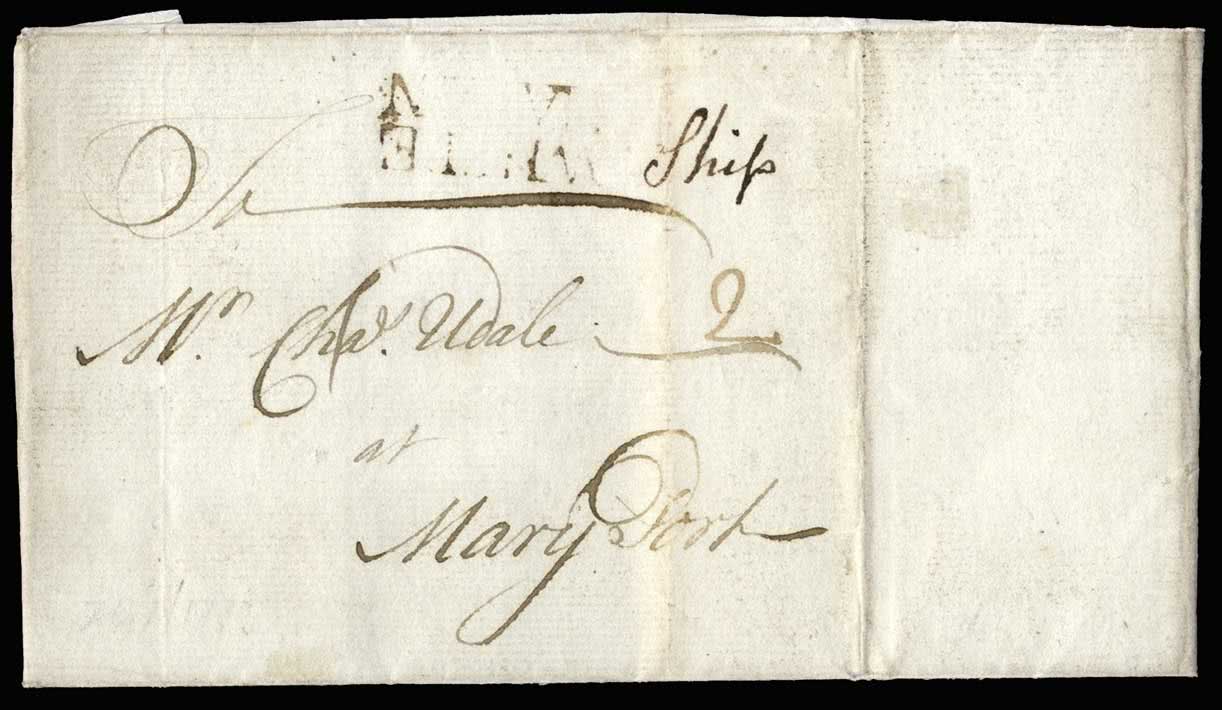 Ship
To
Mr. Chas. Udale 2
at
Mary Port